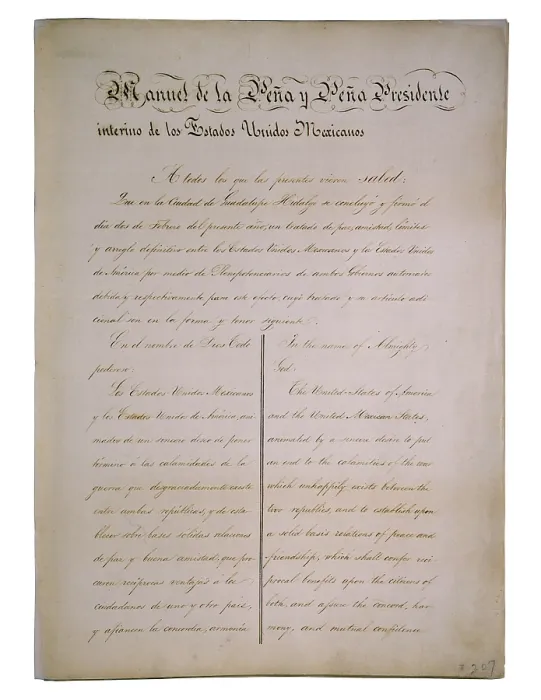 Manuel de la Peña y Peña Presidente
interino de los Estados Unidos Mexicanos
A todos los que las presentes vieren salud:
Que en la Ciudad de Guadalupe Hidalgo se concluyó y firmó el
día dos de Febrero del presente año, un tratado de paz, amistad, límites
y arreglo definitivo entre los Estados Unidos Mexicanos y los Estados Unidos
de América por medio de Plenipotenciarios de ambos Gobiernos autorizados
debida y respectivamente para este efecto, cuyo tratado y su artículo adi-
cional son en la forma y tenor siguiente.
En el nombre de Dios Todo
poderoso:
Los Estados Unidos Mexicanos
y los Estados Unidos de América, ani-
mados de un sincero deseo de poner
término á las calamidades de la
guerra que desgraciadamente existe
entre ambas repúblicas, y de esta-
blecer sobre bases sólidas relaciones
de paz y buena amistad, que pro-
curen recíprocas ventajas á los
ciudadanos de uno y otro país,
y afiancen la concordia, armonía
In the name of Almighty
God:
The United States of America
and the United Mexican States,
animated by a sincere desire to put
an end to the calamities of the war
which unhappily exists between the
two republics, and to establish upon
a solid basis relations of peace and
friendship, which shall confer reci-
procal benefits upon the citizens of
both, and assure the concord, har-
mony, and mutual confidence
207